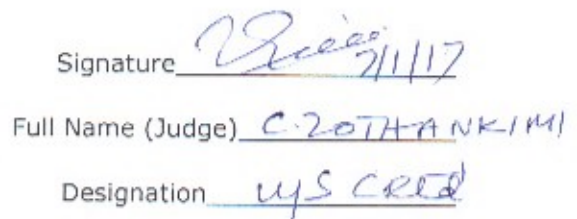 Signature 7/1/17
Full Name (Judge) C. ZOTHANKIMI
Designation